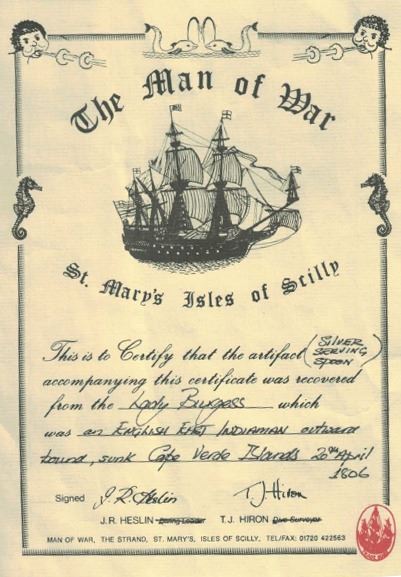 The Man of War
St. Mary's Isles of Scilly
This is to Certify that the artifact (SILVER SERVING SPOON)
accompanying this certificate was recovered
from the Lady Burgess which
was an ENGLISH EAST INDIAMAN outward
bound, sunk Cape Verde Islands 20th April
1806
Signed J.R. Heslin T.J Hiron
J.R. HESLIN Diving Leader T.J. HIRON Dive Surveyor
MAN OF WAR, THE STRAND, ST. MARY'S, ISLES OF SCILLY, TEL/FAX: 01720 422563